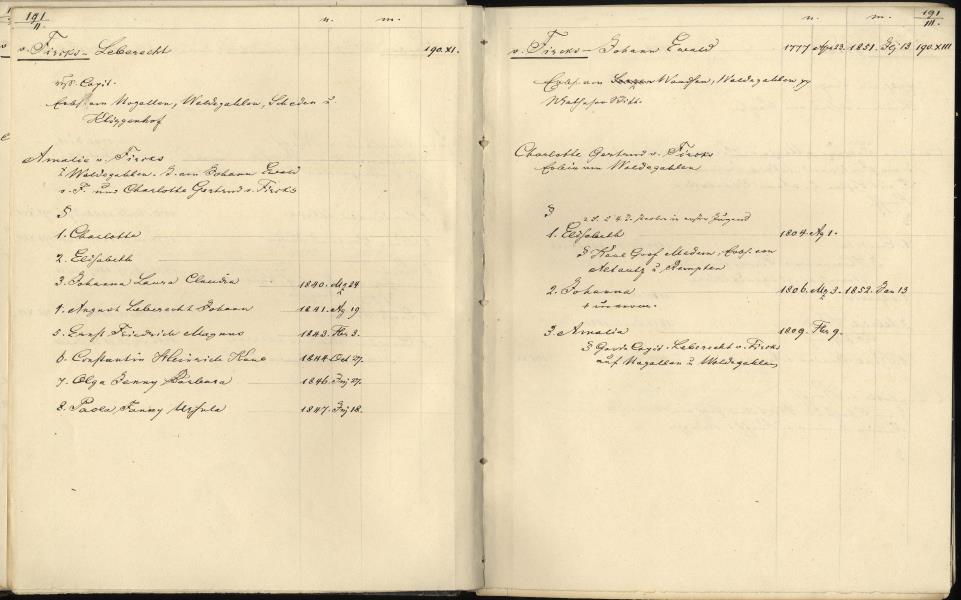 191
II.
n. m.
v. Fircks - Leberecht 190.XI.
russ. Capit.
Erbh. von Nogallen, Waldegahlen, Scheden u.
Kliggenhof
Amalie v. Fircks
a. Waldegahlen. T. von Johann Ewald
v. F. und Charlotte Gertrud v. Fircks
§
1. Charlotte
2. Elisabeth
3. Johanna Laura Claudia 1840. Mz 24
4. August Leberecht Johann 1841. Ag 19
5. Ernst Friedrich Magnus 1843. Fbr 3.
6. Constantin Heinrich 1844. Oct 27.
7. Olga Jenny Barbara 1846. Jnj 27.
8. Paola Fanny Ursula 1847. 18.
191
III.
n. m.
v. Fircks - Johann Ewald 1777 Apr 23. 1851. 13 190.XIII
Erbh. von Wandsen, Waldegahlen
Charlotte Gertrud v. Fircks
Erbin von Waldegahlen
§
1. Elisabeth 1804. Ag 1.
§ Karl Graf Medem, Erbh. von
Altautz u. Rempten
2. Johanna 1806. Mz 3. 1852. Jan 13
3. Amalia 1809. Fbr 9.
§ Garde Capit. Leberecht v. Fircks
auf Nogallen u. Waldegahlen